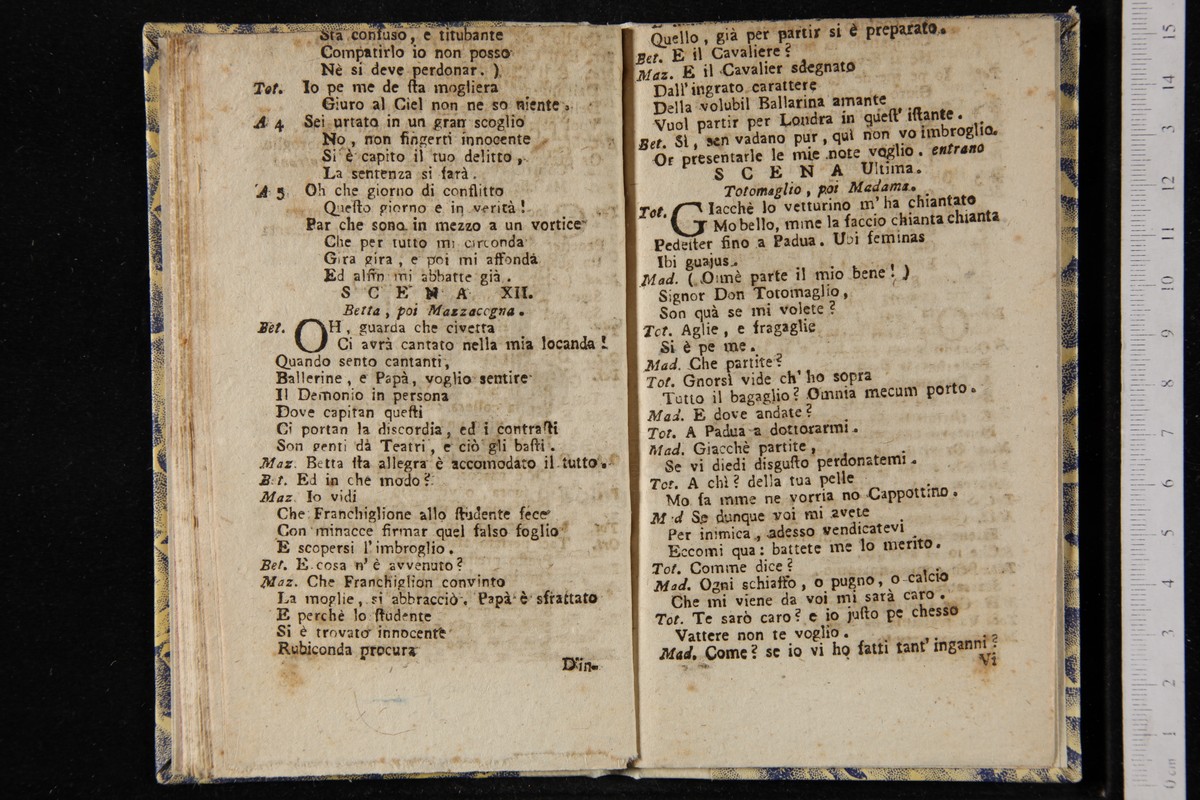 Sta confuso, e titubante
Compatirlo io non posso
Nè si deve perdonar. )
Tot. Io pe me de sta mogliera
Giuro al Ciel non ne so niente.
A 4 Sei urtato in un gran scoglio
No, non fingerti innocente
Si è capito il tuo delitto,
La sentenza si farà.
A 5 Oh che giorno di conflitto
Questo giorno e in verità!
Par che sono in mezzo a un vortice
Che per tutto mi circonda
Gira gira, e poi mi affonda
Ed alfin mi abbatte già.
SCENA XII.
Betta, poi Mazzacogna.
Bet. OH, guarda che civetta
Ci avrà cantato nella mia locanda!
Quando sento cantanti,
Ballerine, e Papà, voglio sentire
Il Demonio in persona
Dove capitan questi
Ci portan la discordia, ed i contrasti
Son genti dà Teatri, e ciò gli basti.
Maz. Betta sta allegra è accomodato il tutto.
Bet. Ed in che modo?
Maz. Io vidi
Che Franchiglione allo studente fece
Con minacce firmar quel falso foglio
E scopersi l'imbroglio.
Bet. E cosa n'è avvenuto?
Maz. Che Franchiglion convinto
La moglie, si abbracciò, Papà è sfrattato
E perchè lo studente
Si è trovato innocente
Rubiconda procura
Din-
Quello, già per partir si è preparato.
Bet. E il Cavaliere?
Maz. E il Cavalier sdegnato
Dall'ingrato carattere
Della volubil Ballarina amante
Vuol partir per Londra in quest'istante.
Bet. Sì, sen vadano pur, quì non vo imbroglio.
Or presentarle le mie note voglio. entrano
SCENA Ultima.
Totomaglio, poi Madama.
Tot. GIacchè lo vetturino m'ha chiantato
Mo bello, mme la faccio chianta chianta
Pedester fino a Padua. Ubi feminas
Ibi guajus.
Mad. ( Oimè parte il mio bene! )
Signor Don Totomaglio,
Son quà se mi volete?
Tot. Aglie, e fragaglie
Si è pe me.
Mad. Che partite?
Tot. Gnorsì vide ch'ho sopra
Tutto il bagaglio? Omnia mecum porto.
Mad. E dove andate?
Tot. A Padua a dottorarmi.
Mad. Giacchè partite,
Se vi diedi disgusto perdonatemi.
Tot. A chì? della tua pelle
Mo fa mme ne vorria no Cappottino.
Mad Se dunque voi mi avete
Per inimica, adesso vendicatevi
Eccomi qua: battete me lo merito.
Tot. Comme dice?
Mad. Ogni schiaffo, o pugno, o calcio
Che mi viene da voi mi sarà caro.
Tot. Te sarò caro? e io justo pe chesso
Vattere non te voglio.
Mad. Come? se io vi ho fatti tant'inganni?
Vi